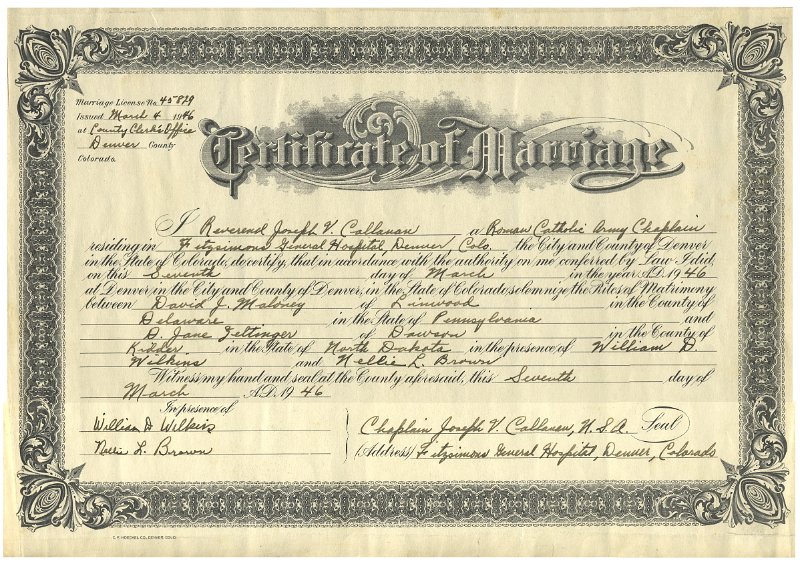 Marriage License No. 45879
Issued March 4 1946
at County Clerk's Office
Denver County
Colorado.
Certificate of Marriage
I Reverend Joseph V. Callanan a Roman Catholic Army Chaplain
residing in Fitzsimons General Hospital Denver, Colo. the City and County of Denver
in the State of Colorado, do certify, that in accordance with the authority on me conferred by Law I did,
on this Seventh day of March in the year A.D. 1946
at Denver, in the City and County of Denver, in the State of Colorado, solemnize the Rites of Matrimony
between David J. Maloney of Linwood in the County of
Delaware in the State of Pennsylvania and
D. Jane Zeltinger of Dawson in the County of
Kidder in the State of North Dakota in the presence of William D.
Wilkins and Nellie L. Brown
Witness my hand and seal at the County aforesaid, this Seventh day of
March A.D. 1946
In presence of
William D Wilkins
Nellie L. Brown
Chaplain Joseph V. Callanan, U.S.A. Seal
(Address) Fitzsimons General Hospital, Denver, Colorado
C. F. HOECKEL CO., DENVER, COLO.